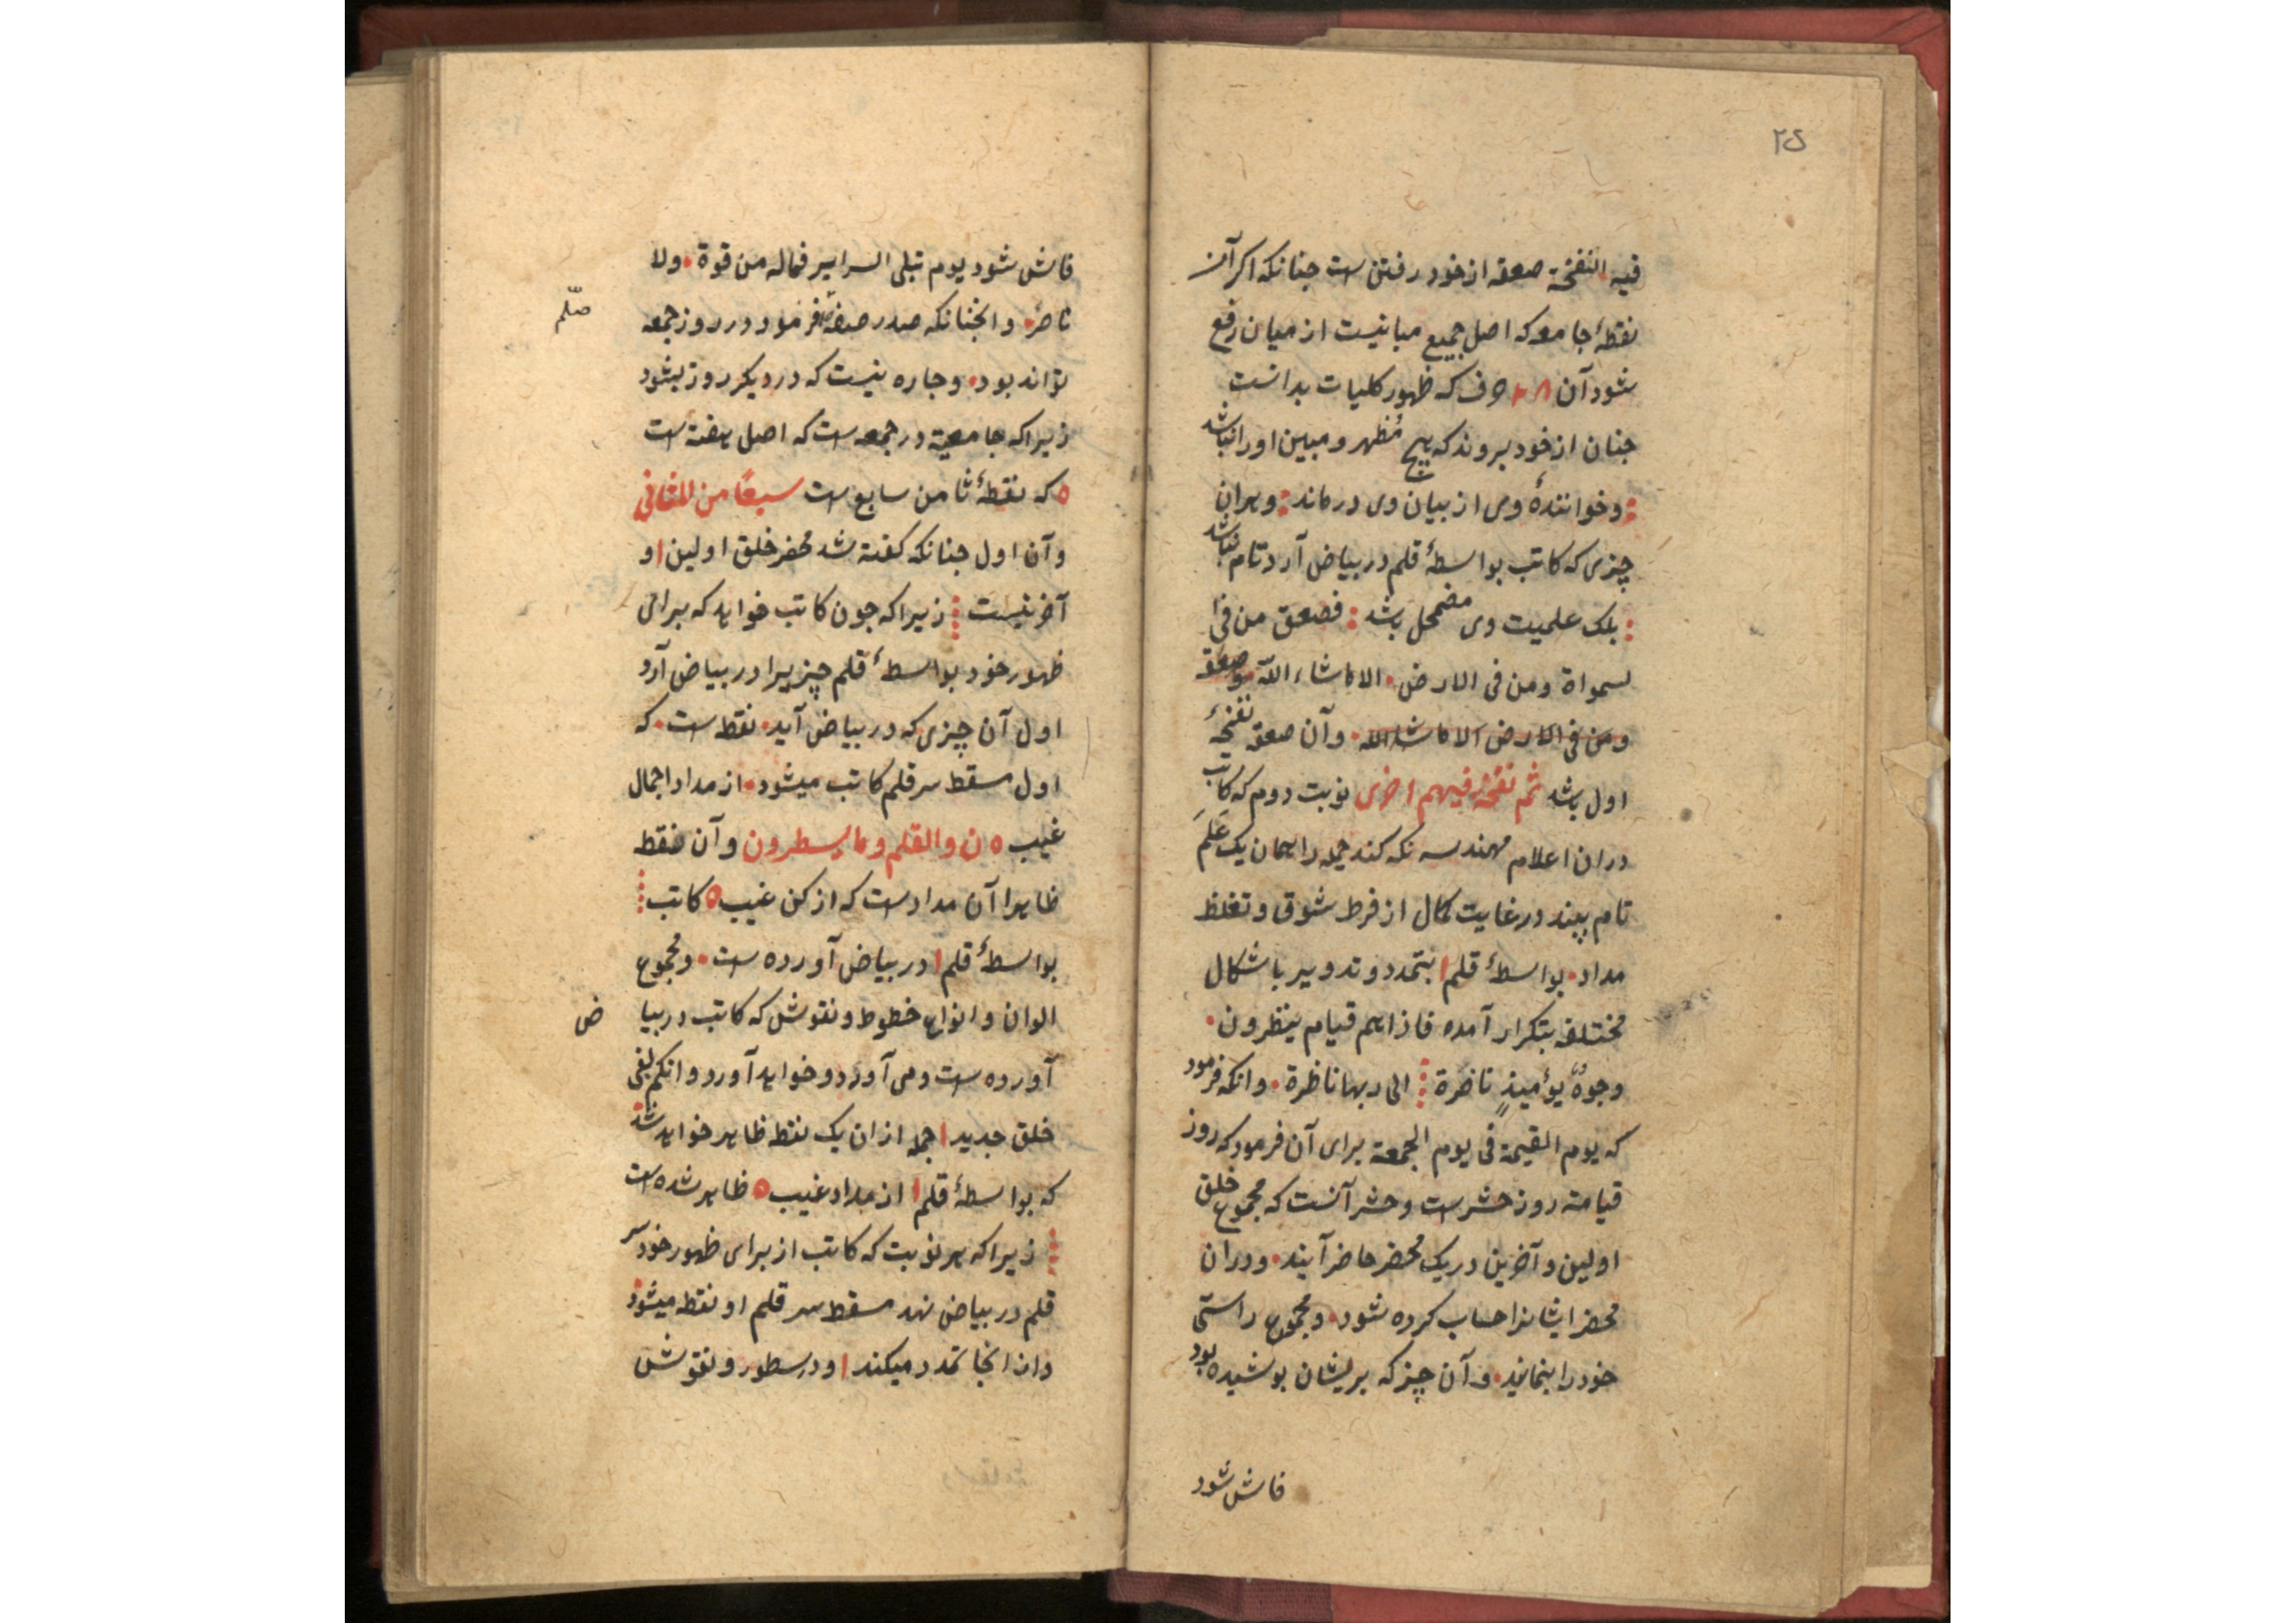 ۲۵
فیه النفخة صعقه از خود رفتن است جنانکه اکر آن
نقطهٔ جامعه که اصل جمیع مبانیست از میان رفع
شود آن ۲۸ حرف که ظهور کلیات بدانست
جنان از خود بروند که هیچ مُظهر و مبین او را نباشد
وخوانندهٔ وی از بیان وی درماند وهران
چیزی که کاتب بواسطهٔ قلم در بیاض آرد تام نباشد
بلک علمیت وی مضمحل باشد فصعق من فی ا
لسمواة ومن فی الارض الا ماشاء اللّه صعقه
ومن فی الارض الا ماشاالله وآن صعقه نفخهٔ
اول باشد ثم نفخة فیهم اخری نوبت دوم که کاتب
دران اعلام مهندسه نکه کند جمله را همان یک عَلَم
تام بیند در غایت کمال از فرط شوق و تغلظ
مداد بواسطهٔ قلم ا بتمدد و تدویر باشکال
مختلفه بتکرار آمده فاذاهم قیام ینظرون
وجوهٌ یومیذٍ ناضرة الی ربها ناظرة وانکه فرمود
که یوم القیمة فی یوم الجمعة برای آن فرمود که روز
قیامة روز حشر است وحشر آنست که مجموع خلق
اولین وآخرین در یک محضر حاضر آیند ودران
محضر ایشانرا حساب کرده شود ومجموع راستی
خود را بنمایند وآن چیز که بریشان بوشیده بود
فاش شود
فاش شود یوم تبلی السرایر فماله من قوة ولا
ناصر وانجنانکه صدر صفهٔ فرمود در روز جمعه
صلّم
تواند بود وجاره نیست که در دیکر روز نشود
زیراکه جامعیة در جمعه است که اصل هفته است
ه که نقطهٔ ثامن سابع است سبعًا من المثانی
وآن اول جنانکه کفته شد محضر خلق اولین ا و
آخرینست زیراکه جون کاتب خواهد که برای
ظهور خود بواسطهٔ قلم چیزیرا در بیاض آرد
اول آن چیزی که در بیاض آید نقطه است که
اول مسقط سر قلم کاتب میشود از مداد اجمال
غیب ه ن والقلم وما یسطرون وآن نقطه
ظاهرا آن مدادست که از کن غیب ه کاتب
بواسطهٔ قلم ا در بیاض آورده است ومجموع
الوان وانواع خطوط ونقوش که کاتب در بیا
ض
آورده است ومی آورد وخواهد آورد وانکم لفی
خلق جدید ا جمله ازان یک نقطه ظاهر خواهد شد
که بواسطهٔ قلم ا از مداد غیب ه ظاهر شده است
زیراکه هر نوبت که کاتب از برای ظهور خود سر
قلم در بیاض نهد مسقط سر قلم او نقطه میشود
واز انجا تمدد میکند ا ودر سطور ونقوش